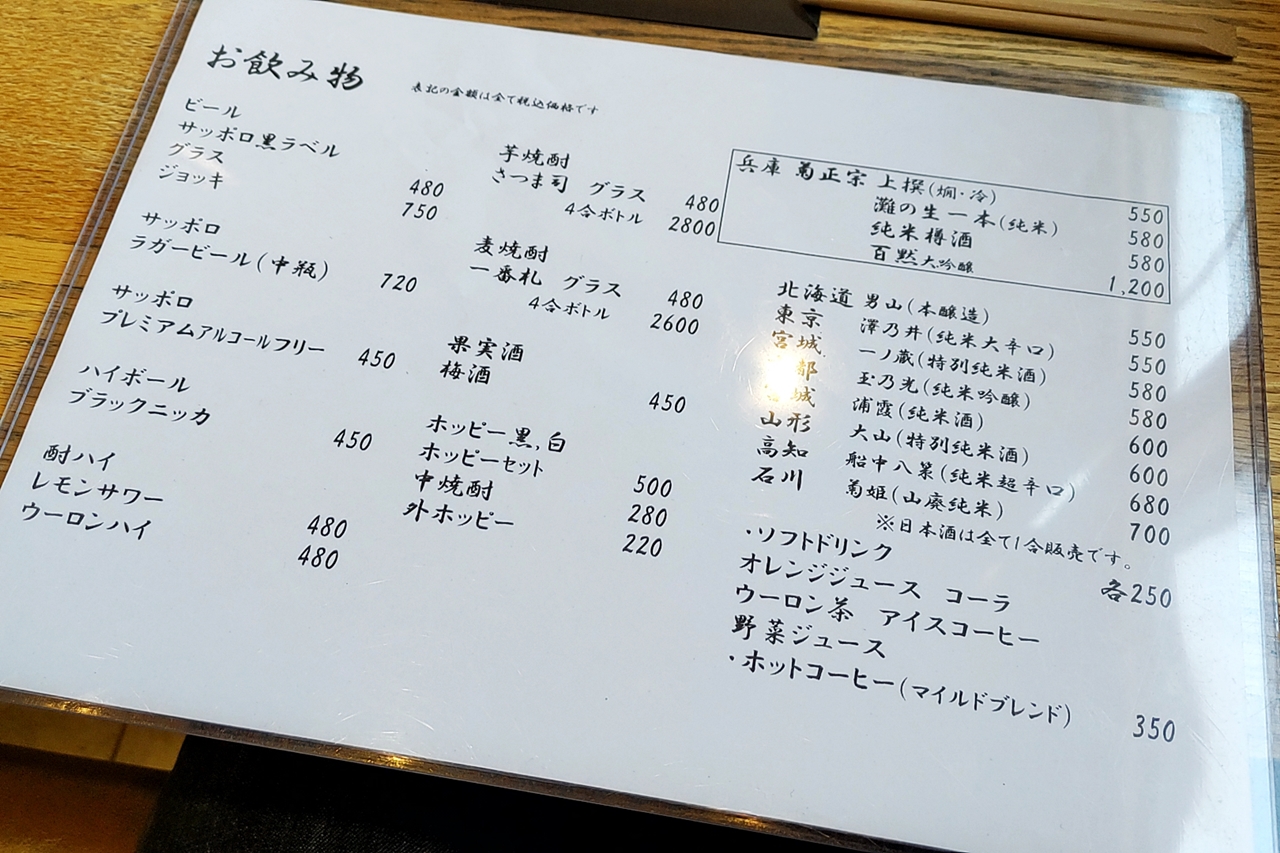 お飲み物
表記の金額は全て税込価格です
ビール
サッポロ黒ラベル
グラス 480
ジョッキ 750
サッポロ
ラガービール(中瓶) 720
サッポロ
プレミアムアルコールフリー 450
ハイボール
ブラックニッカ 450
酎ハイ
レモンサワー 480
ウーロンハイ 480
芋焼酎
さつま司 グラス 480
4合ボトル 2800
麦焼酎
一番札 グラス 480
4合ボトル 2600
果実酒
梅酒 450
ホッピー黒,白
ホッピーセット 500
中焼酎 280
外ホッピー 220
兵庫 菊正宗 上撰(燗・冷) 550
灘の生一本(純米) 580
純米樽酒 580
百黙大吟醸 1,200
北海道 男山(本醸造) 550
東京 澤乃井(純米大辛口) 550
宮城 一ノ蔵(特別純米酒) 580
都 玉乃光(純米吟醸) 580
城 浦霞(純米酒) 600
山形 大山(特別純米酒) 600
高知 船中八策(純米超辛口) 680
石川 菊姫(山廃純米) 700
※日本酒は全て1合販売です。
・ソフトドリンク 各250
オレンジジュース コーラ
ウーロン茶 アイスコーヒー
野菜ジュース
・ホットコーヒー(マイルドブレンド) 350